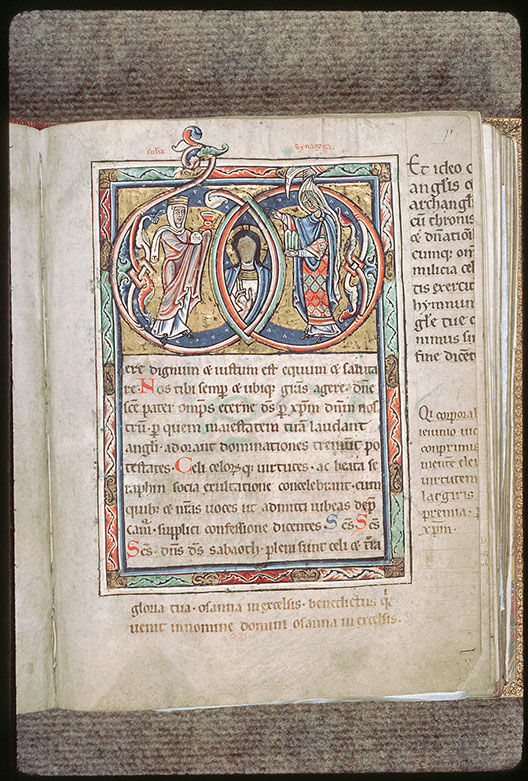 synagoga
ere dignum & iustum est equum & saluta
re· Nos tibi semp & ubiq; grās agere· dñe
scē pater omps eterne ds p xpm dnm nos
trū· p quem maiestatem tuā laudant
angłi· adorant dominationes tremunt po
testates· Celi celorq; uirtutes· ac beata se
raphin socia exultatione concelebrant· cum
quib; & nr̄as uoces ut admitti iubeas dep̄
cam̄· supplici confessione dicentes Scs̄ Scs̄
Scs̄· dn̄s ds̄ sabaoth· pleni sunt celi & t̄ra
gloria tua· osanna in excelsis· benedictus q̇
uenit in nomine domini osanna in excelsis·
Et ideo c
angłis
archangłi
cū thronis
& dn̄ation
cumq; om
milicia cel
tis exercit
hymnum
głe tue c
nimus sin
fine dicēt
Qi corporal
ieiunio uic
conprimis
mente ele
uirtutem
largiris
premia· p
xp̄m·